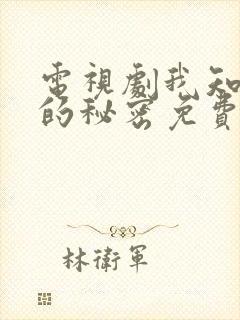 電視劇我知
的秘密免費
林衛軍